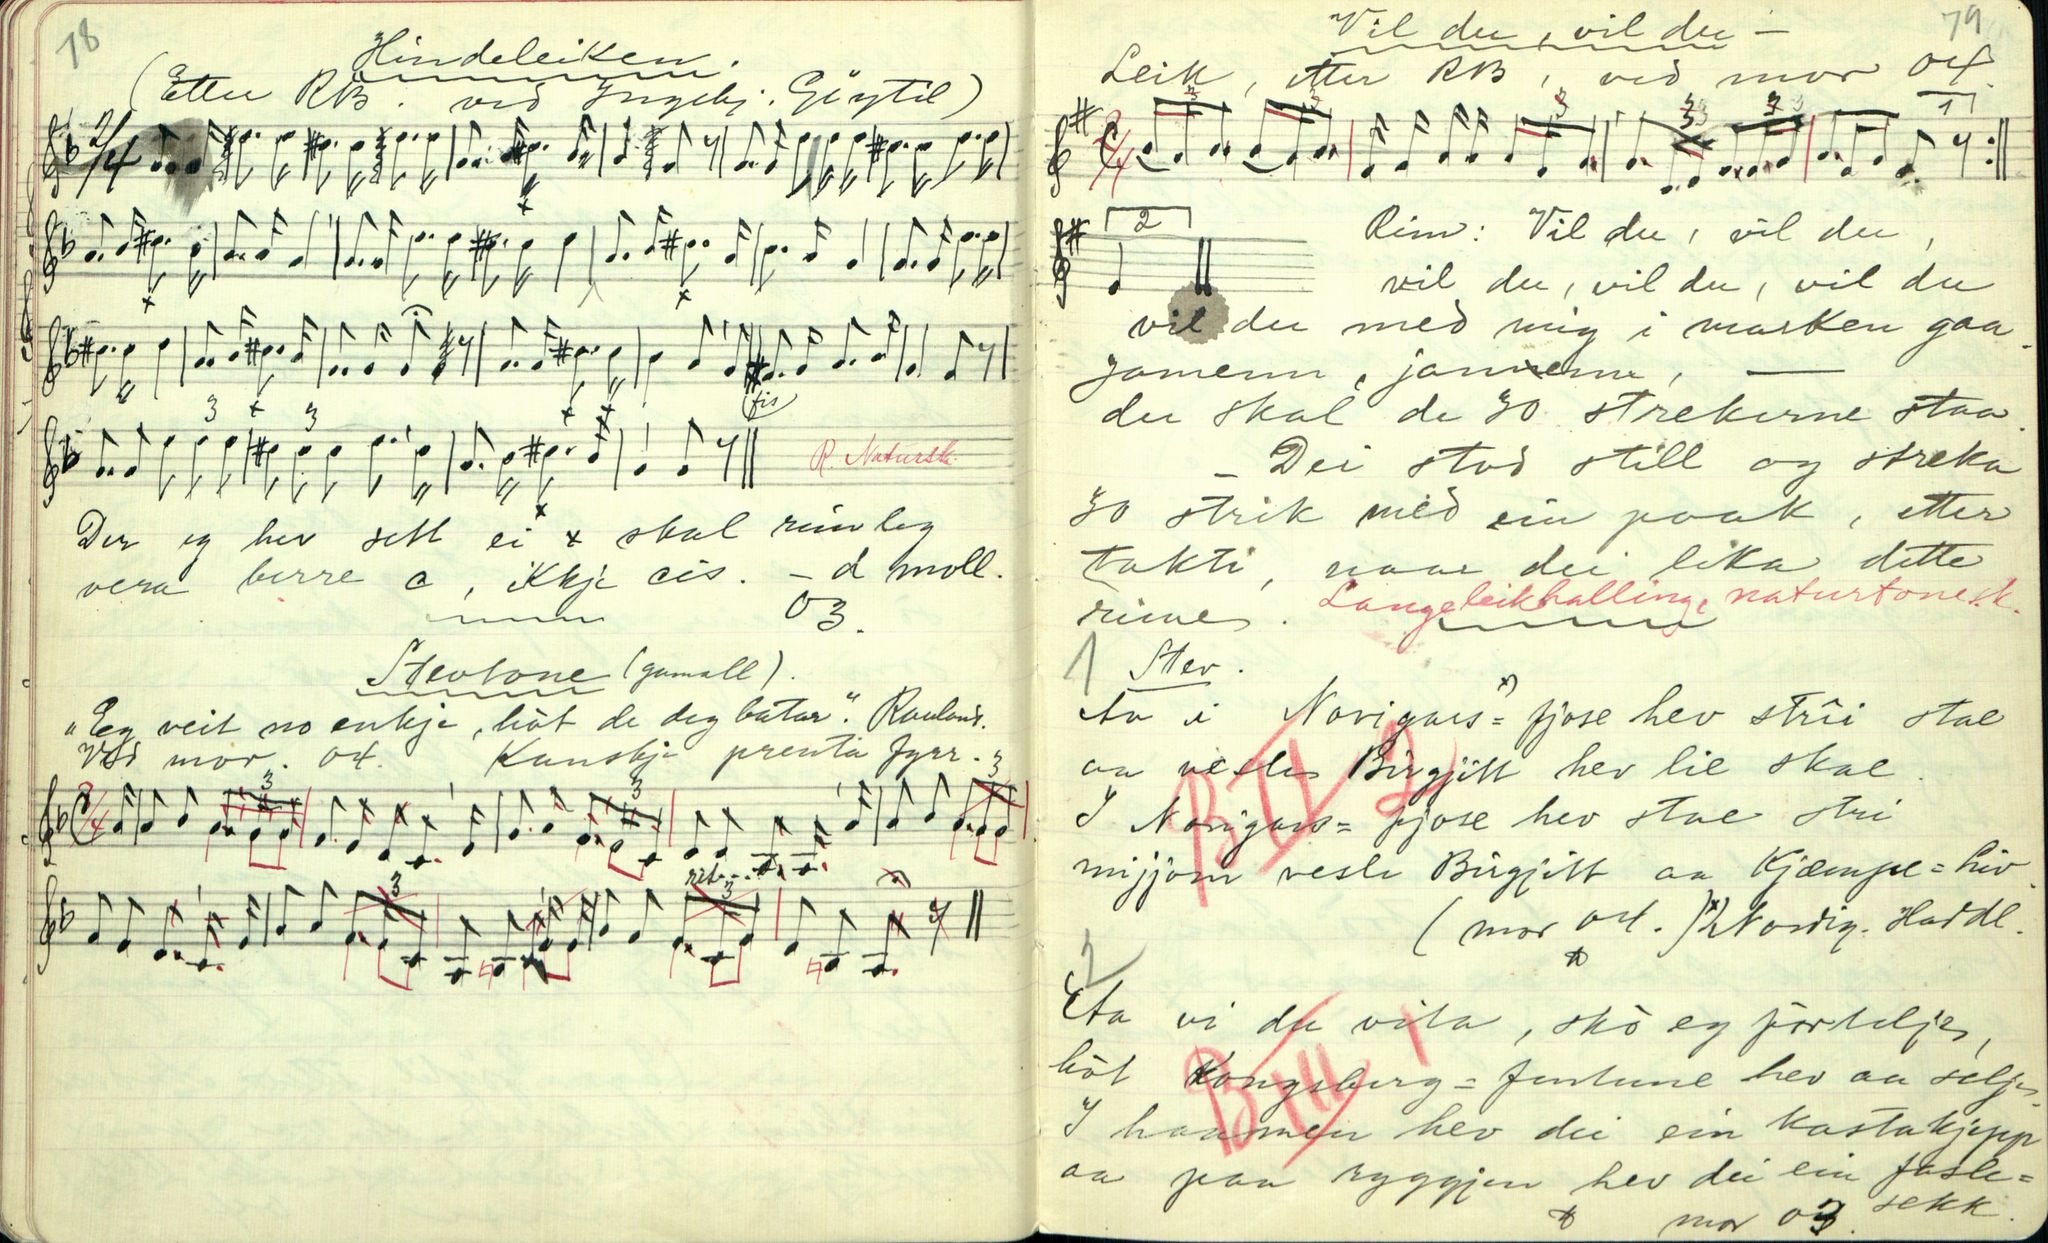 78
Hindeleiken.
(Etter RB. ved Ingebj. Göytil)
2/4
fis
3 3
R. Natursk.
Der eg hev sett ei x skal rimleg
vera berre c, ikkje cis. – d moll.
03.
Stevtone (gamall).
"Eg veit no enkje, hòt de deg batar". Rauland.
Ved mor. 04. Kanskje prenta fyrr.
3 3 3
rit...
3 3
79
Vil du, vil du –
Leik, etter RB, ved mor 04.
3 3 3 3 3 1
2
Rim: Vil du, vil du,
vil du, vil du, vil du
vil du med mig i marken gaa.
jamenn, jamenn, —
du skal de 30 strekerne staa.
– Dei stod still og streka
30 strik med ein paak, etter
takti, naar dei lika dette
rime.
Langeleikhalling, naturtonesk.
1 Stev.
Aa i Norigars=x) fjose hev strii stae
aa vesle Birgjitt hev lie skae.
I Norigars= fjose hev stae stri
mijjom vesle Birgjitt aa Kjæmpe=liv.
BIII 2
(mor 04.) x) Nordig. Haddl.
2
Aa vi du vita, skò eg förtelje,
hòt Kongsberg=jentune hev aa selje.
I haanmen hev dei ein kastakjepp
aa paa ryggjen hev dei ein fasle=
sekk.
BIII 1
mor 03.